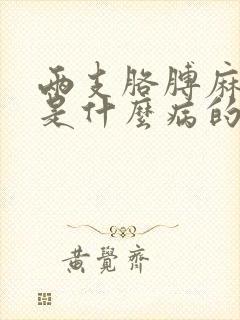 兩支胳膊麻
是什麼病的
黃覺齊